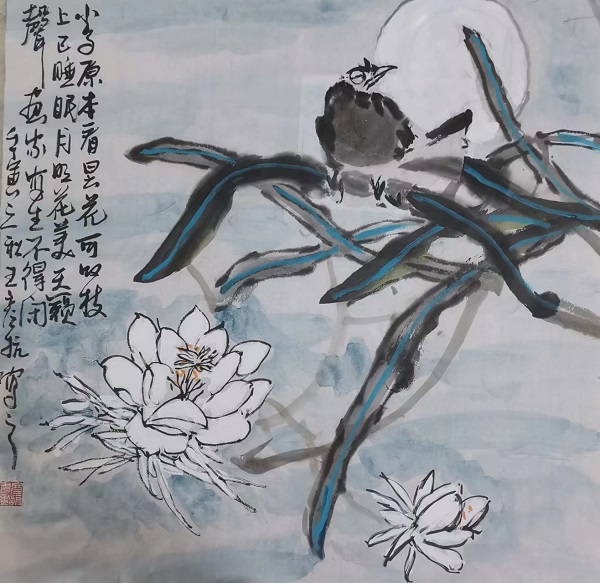 小鸟原本看昙花可以枝
上已睡眠月明花美天籁
聲画家写生不得闲
壬寅之秋王彦写之